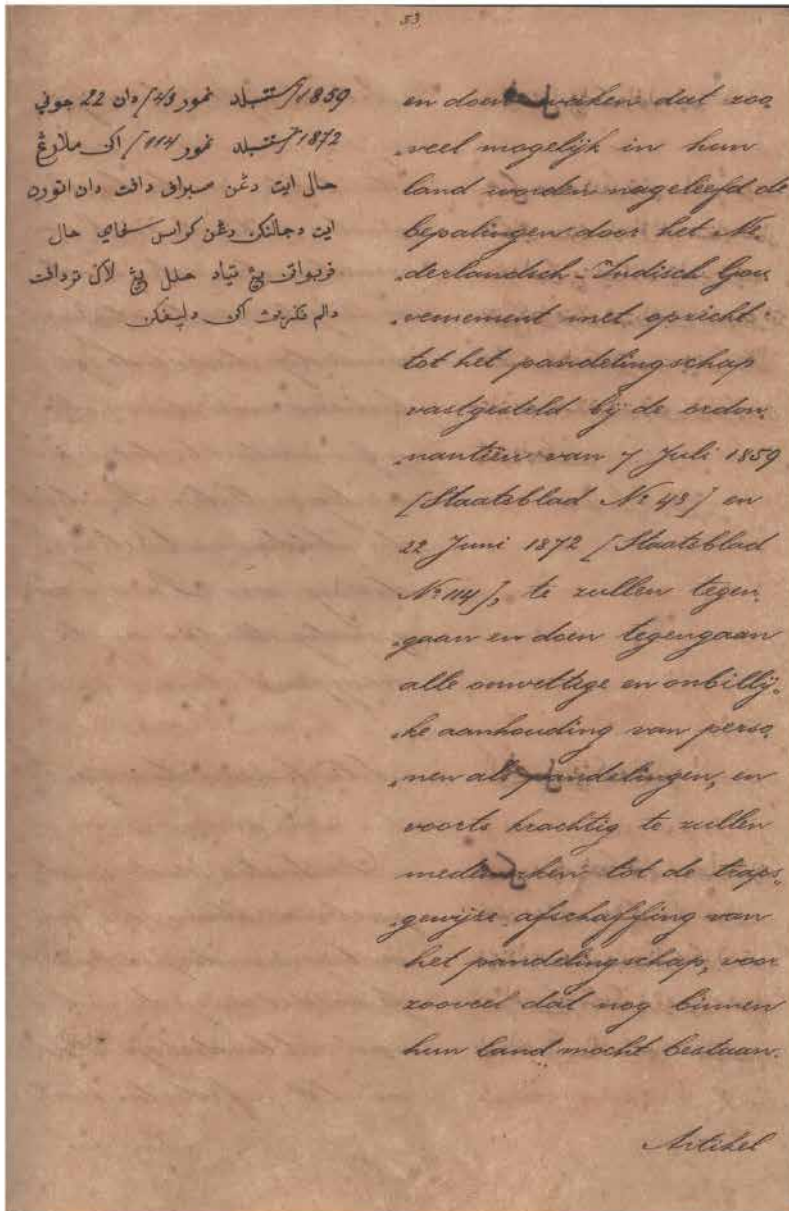 53
1859 /ستتبلد نمور 43/ دان 22 جوني
1872 /ستتبلد نمور 114/ اکن ملارڠ
حال ايت دڠن سبراڤ داڤت دان اتورن
ايت دجالنکن دڠن کراس سڤاي حال
ڤربواتن يڠ تياد هلل يڠ لاݢي تردافت
دالم نݢريڽ اکن دليڤکن
en doen waken dat zoo„
„veel mogelijk in hun
land worden nageleefd de
bepalingen door het Ne„
„derlandsch-Indisch Gou„
„vernement met opzicht
tot het pandelingschap
vastgesteld bij de ordon„
„nantiën van 7 Juli 1859
[Staatsblad No 43] en
22 Juni 1872 [Staatsblad
No 114], te zullen tegen„
„gaan en doen tegengaan
alle onwettige en onbillij„
„ke aanhouding van perso„
„nen als pandelingen, en
voorts krachtig te zullen
medewerken tot de traps„
„gewijze afschaffing van
het pandelingschap, voor
zooveel dat nog binnen
hun land mocht bestaan.
Artikel